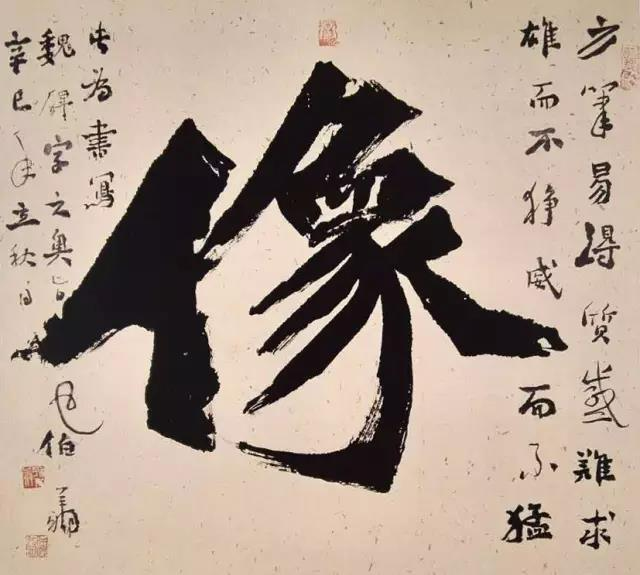 方筆易得質感難求
雄而不猙威而不猛
像
此為書寫
魏碑字之奧旨
辛巳年立秋
伯